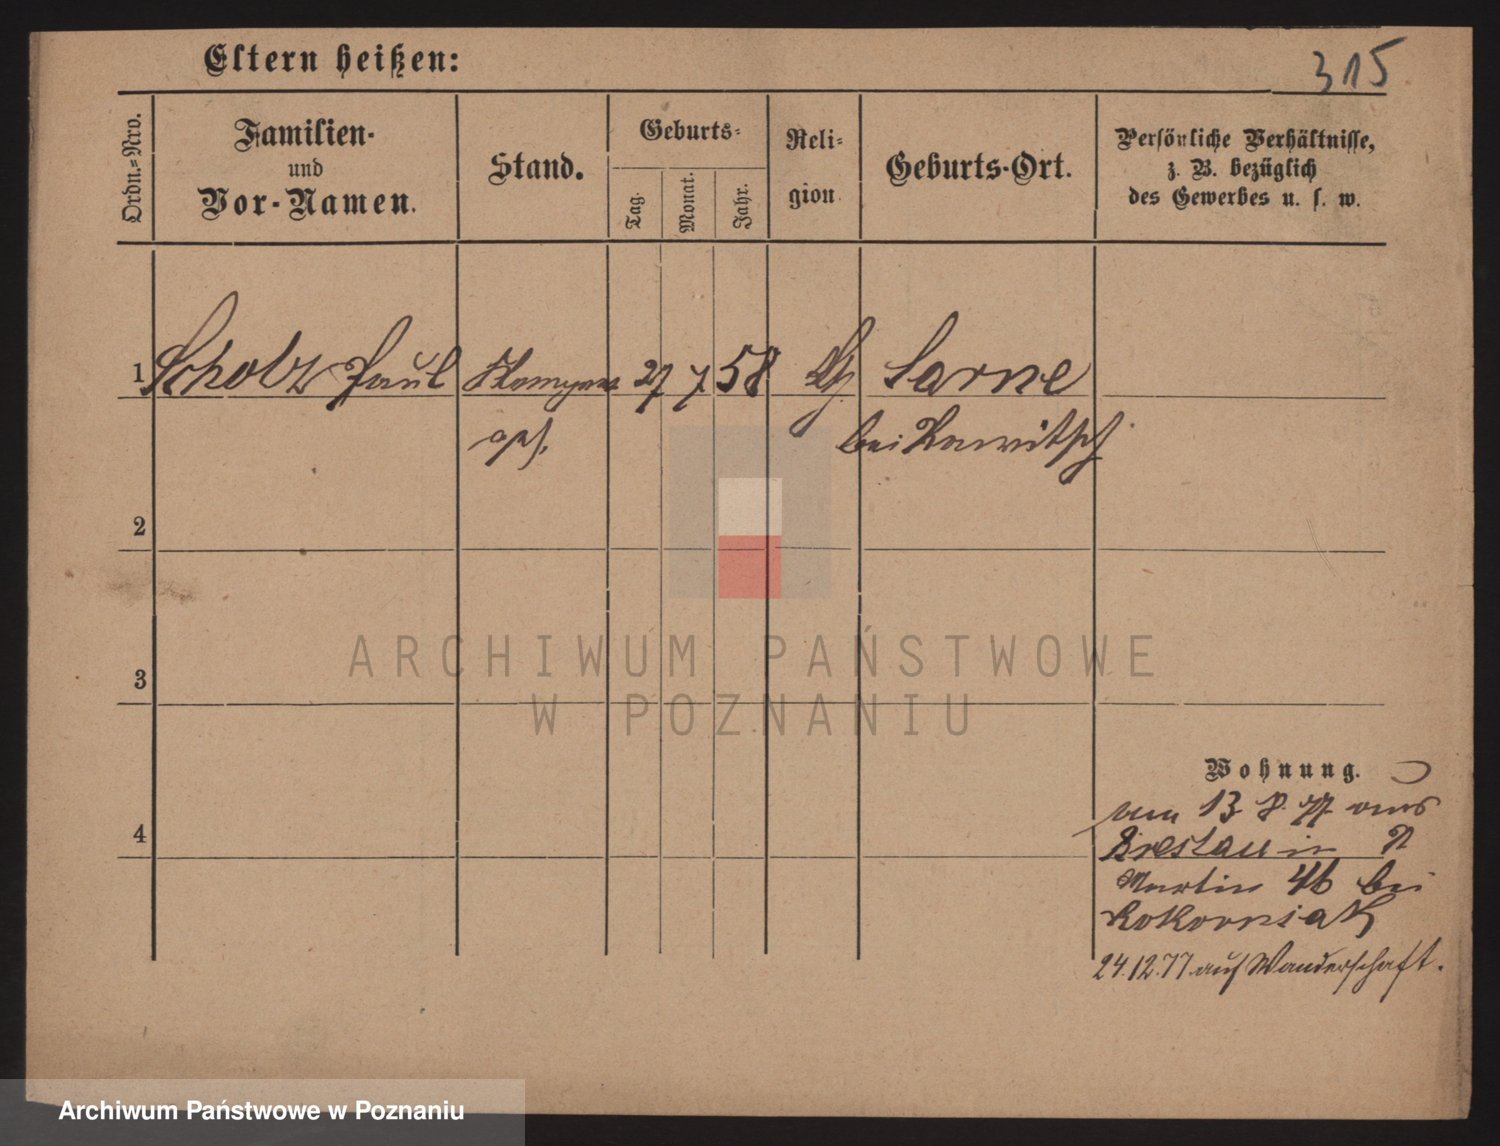 Eltern heißen:
315
Ordn.-Nro.
Familien-
und
Vor-Namen.
Stand.
Geburts-
Tag.
Monat.
Jahr.
Reli-
gion
Geburts-Ort.
Persönliche Verhältnisse,
z. B. bezüglich
des Gewerbes u. s. w.
1 Scholz Paul 27 7 58 Sarne
bei Rawitsch
2
3
4
ARCHIWUM PAŃSTWOWE
W POZNANIU
Wohnung.
13 8 77 aus
Breslau in
Martin 46 bei
Kokorniak
24.12.77 auf Wanderschaft.
Archiwum Państwowe w Poznaniu